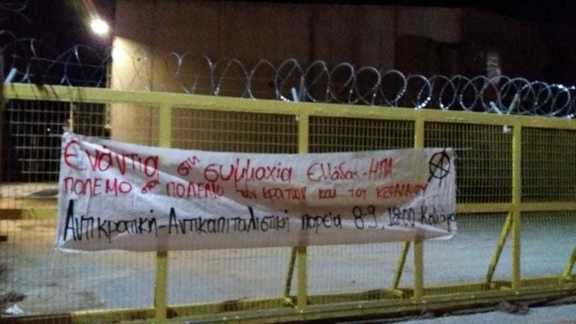 Ενάντια στη συμμαχία Ελλάδας-ΗΠΑ
ΠΟΛΕΜΟ στον ΠΟΛΕΜΟ των ΚΡΑΤΩΝ και του ΚΕΦΑΛΑΙΟΥ
Αντικρατική-Αντικαπιταλιστική πορεία 8-9, 18:00 Καμάρα